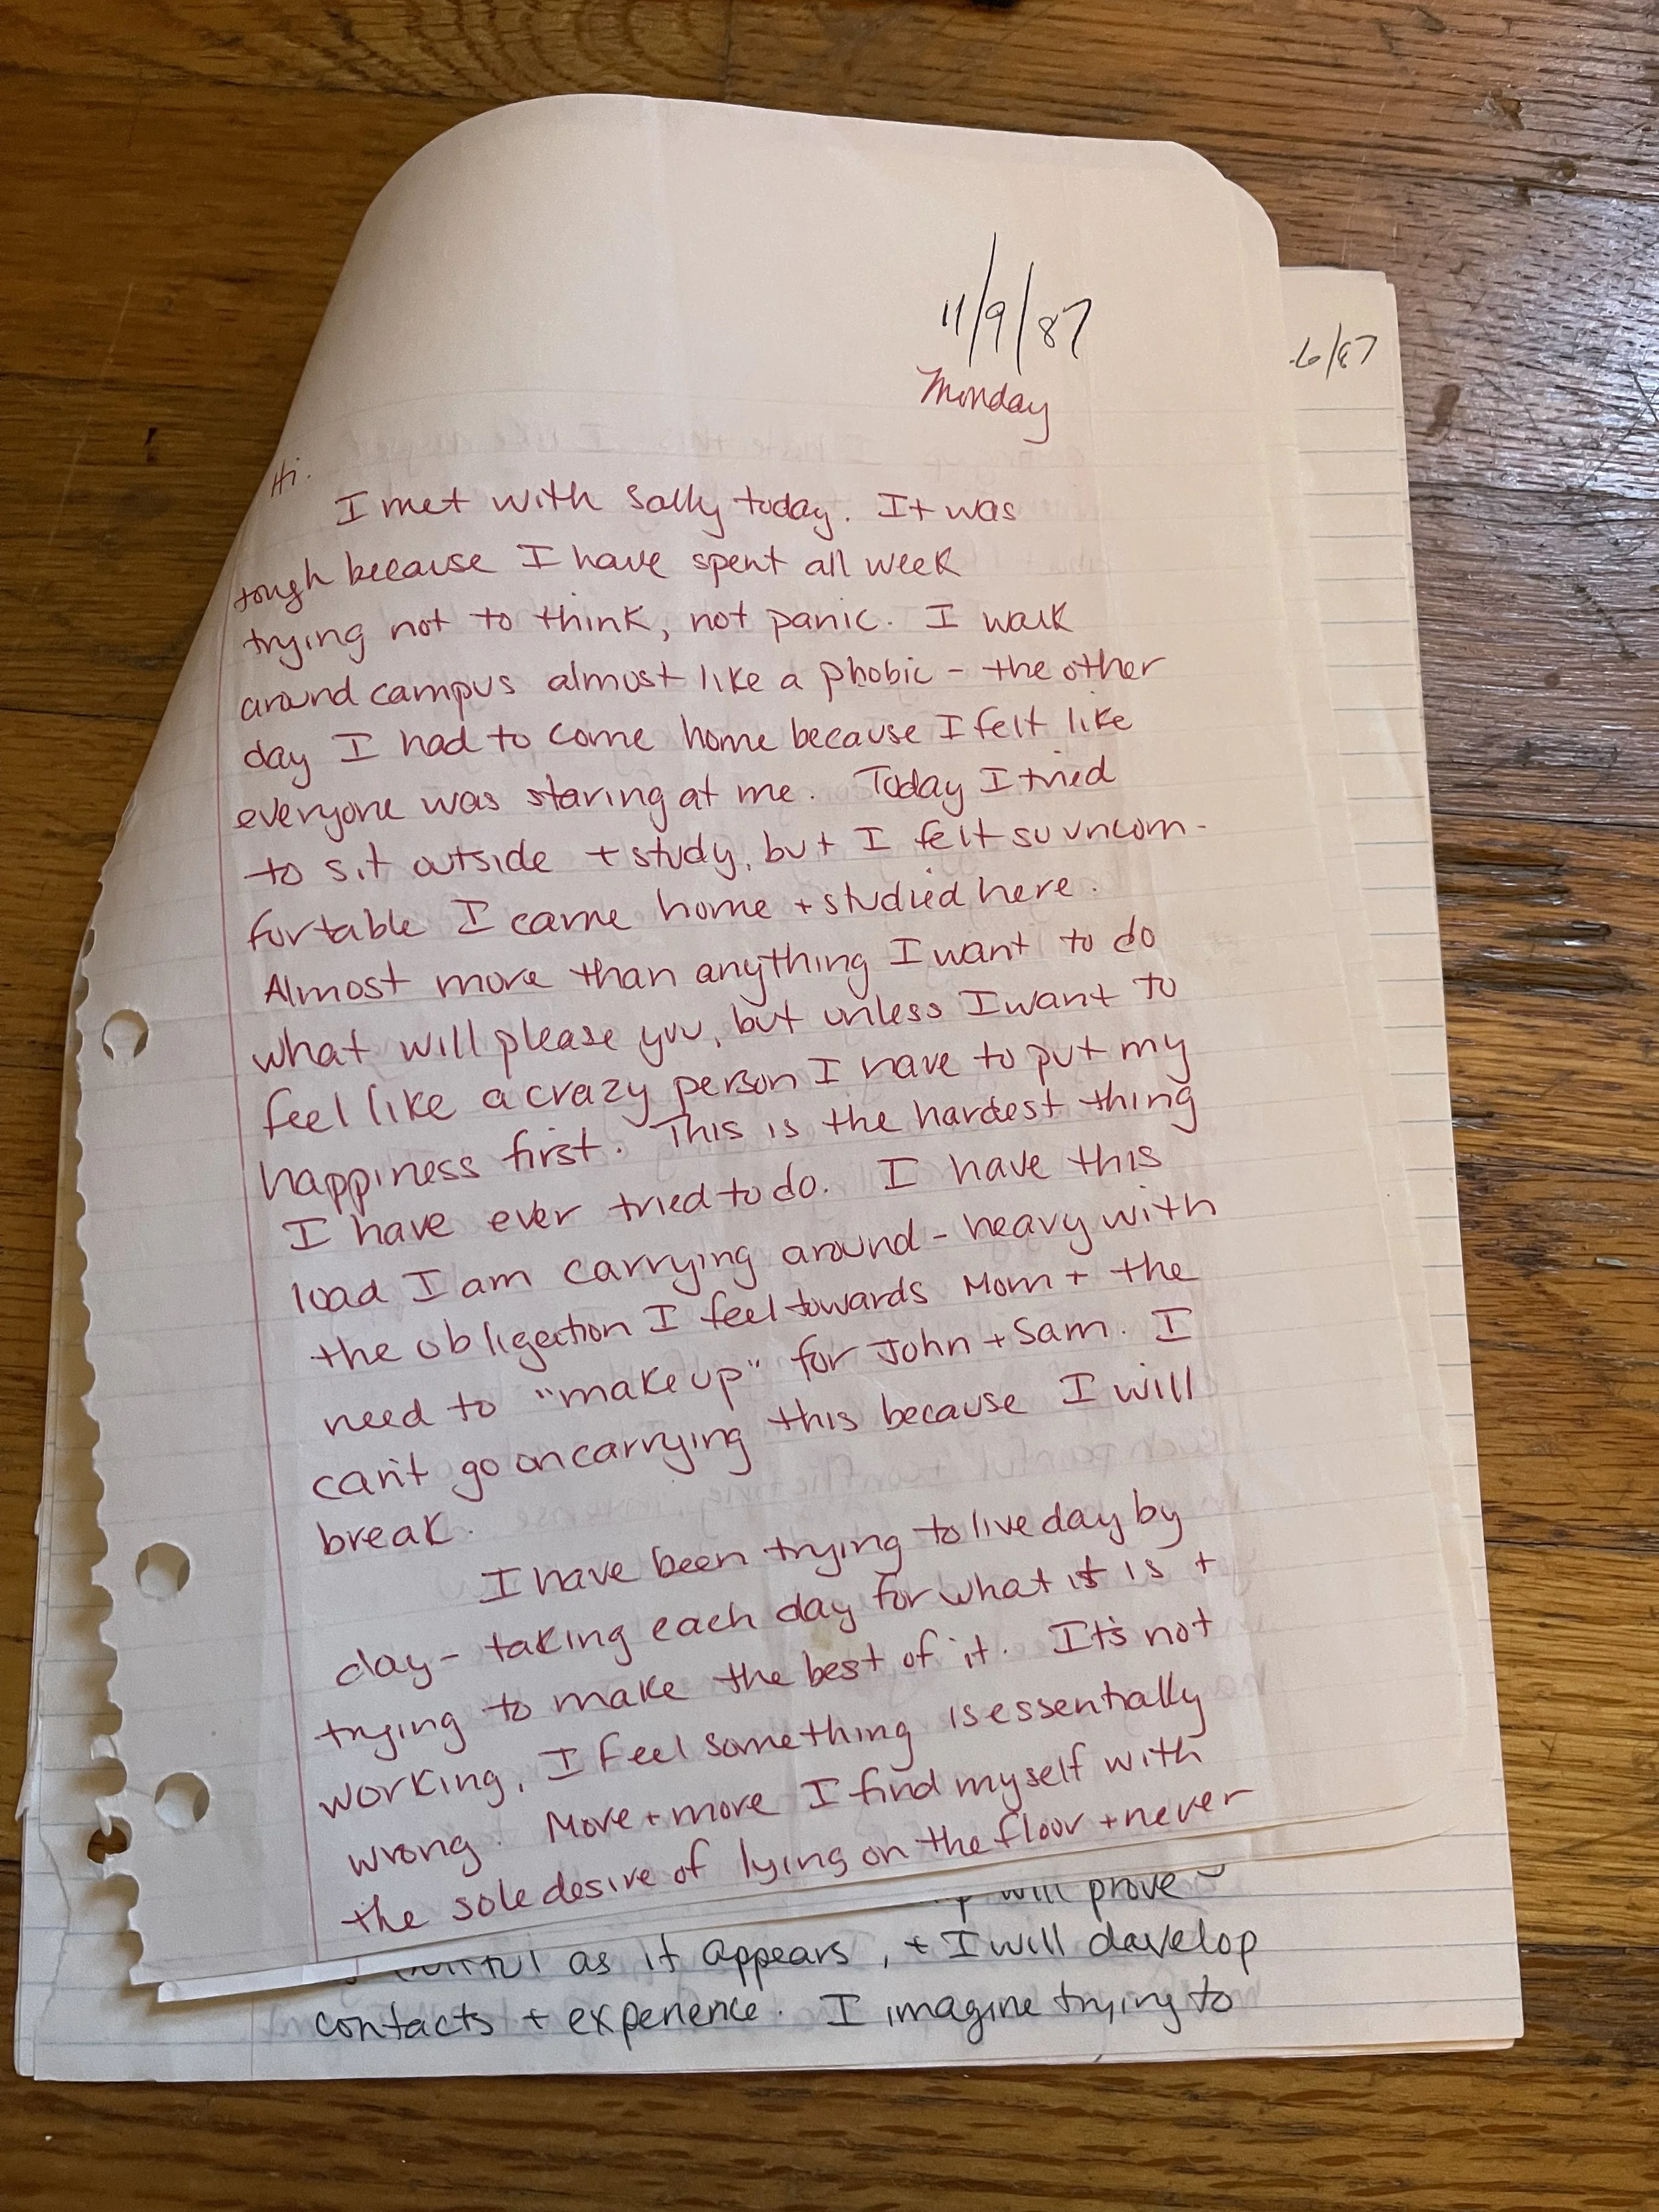 11/9/87
-6/87
Monday
Hi.
I met with Sally today. It was
tough because I have spent all week
trying not to think, not panic. I walk
around campus almost like a phobic - the other
day I had to come home because I felt like
everyone was staring at me. Today I tried
to sit outside + study, but I felt so uncom-
fortable I came home + studied here.
Almost more than anything I want to do
what will please you, but unless I want to
feel like a crazy person I have to put my
happiness first. This is the hardest thing
I have ever tried to do. I have this
load I am carrying around - heavy with
the obligection I feel towards Mom + the
need to "make up" for John + Sam. I
can't go on carrying this because I will
break.
I have been trying to live day by
day - taking each day for what it is +
trying to make the best of it. It's not
working, I feel something is essentially
wrong. More + more I find myself with
the sole desire of lying on the floor + never
will prove
as it appears, + I will develop
contacts + experience. I imagine trying to